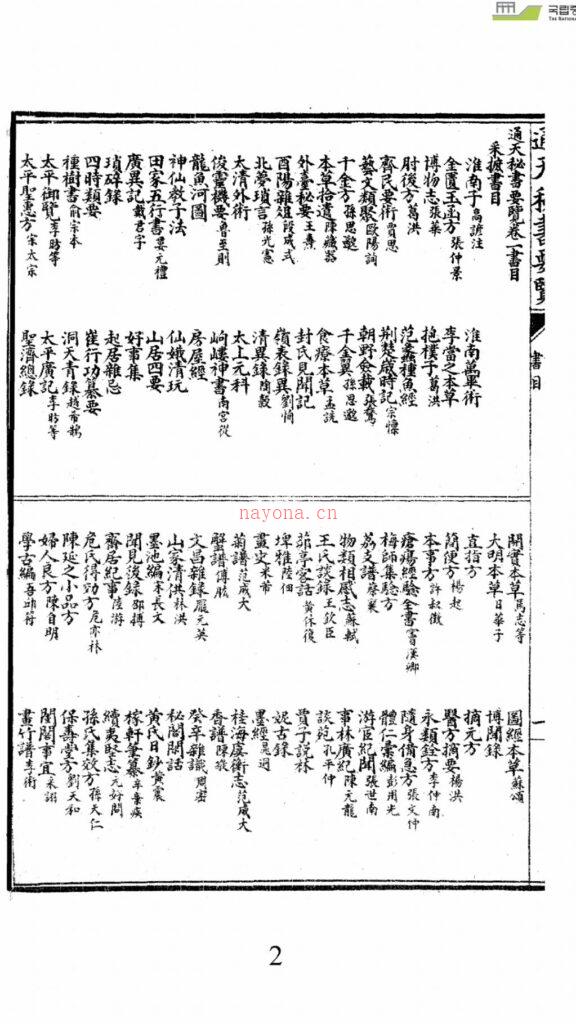 통천
국립중
THE NATIONA
通天秘書要覽
書目
一
通天秘書要覽卷一書目
采摭書目
淮南子高誘注 淮南萬畢術
金匱玉函方張仲景 李當之本草
博物志張華 抱樸子葛洪
肘後方葛洪 范蠡種魚經
齊民要術賈思 荆楚歲時記宗懍
藝文類聚歐陽詢 朝野僉載張鷟
千金方孫思邈 千金翼孫思邈
本草拾遺陳藏器 食療本草孟詵
外臺秘要王燾 封氏見聞記
酉陽雜俎段成式 嶺表錄異劉恂
北夢瑣言孫光憲 清異錄陶穀
太清外術 太上元科
俊靈機要魯至剛 岣嶁神書南宮從
龍魚河圖 房屋經
神仙教子法 仙娥清玩
田家五行書婁元禮 山居四要
廣異記戴君孚 好事集
瑣碎錄 起居雜忌
四時類要 崔行功纂要
種樹書俞宗本 洞天青錄趙希鵠
太平御覽李昉等 太平廣記李昉等
太平聖惠方宋太宗 聖濟總錄
開寶本草馬志等 圖經本草蘇頌
大明本草日華子 博聞錄
直指方 摘元方
簡便方楊起 醫方摘要楊洪
本事方許叔微 永類鈐方李仲南
瘡瘍經驗全書竇漢卿 隨身備急方張文仲
梅師集驗方 體仁彙編彭用光
荔支譜蔡襄 游宦紀聞張世南
物類相感志蘇軾 事林廣紀陳元龍
王氏談錄王欽臣 談苑孔平仲
茆亭客話黃休復 賈子說林
埤雅陸佃 妮古錄
畫史米芾 墨經晁迥
菊譜范成大 桂海虞衡志范成大
蟹譜傅肱 香譜陳敬
文昌雜錄龐元英 癸辛雜識周密
山家清洪林洪 秘閣閒話
墨池編朱長文 黃氏日鈔黃震
聞見後錄邵博 稼軒筆纂辛棄疾
齋居紀事陸游 續夷堅志元好問
危氏得効方危亦林 孫氏集效方孫天仁
陳延之小品方 保壽堂方劉天和
婦人良方陳自明 閨閣事宜朱詡
學古編吾邱衍 畫竹譜李衎
nayona.cn
2